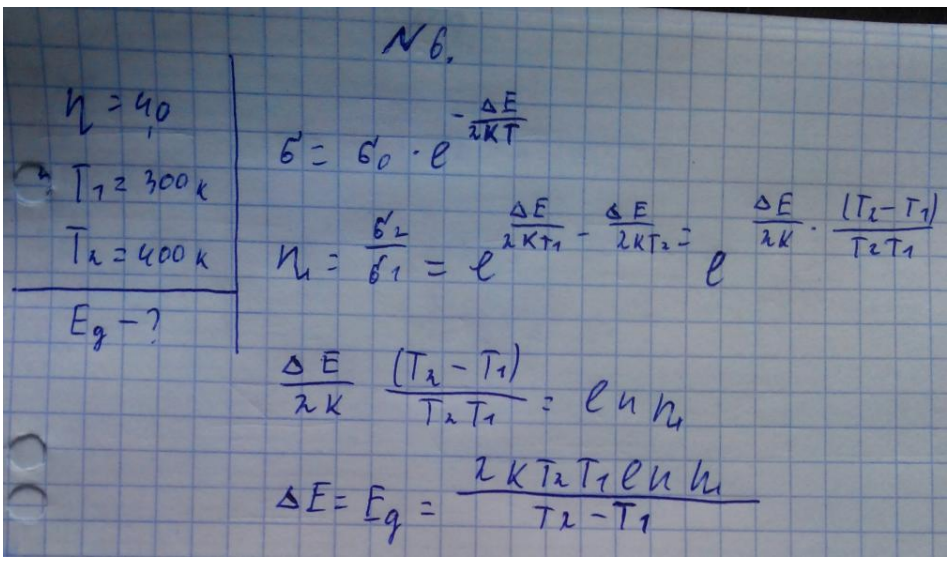 N 6.
η = 40
T₁ = 300 к
T₂ = 400 к
E_g - ?
σ = σ₀ · e^(-ΔE/2KT)
n = σ₂/σ₁ = e^(ΔE/2KT₁ - ΔE/2KT₂) = e^(ΔE/2K · (T₂-T₁)/T₂T₁)
ΔE/2K (T₂ - T₁)/T₂T₁ = ln n
ΔE = E_g = 2KT₂T₁ ln n/T₂-T₁